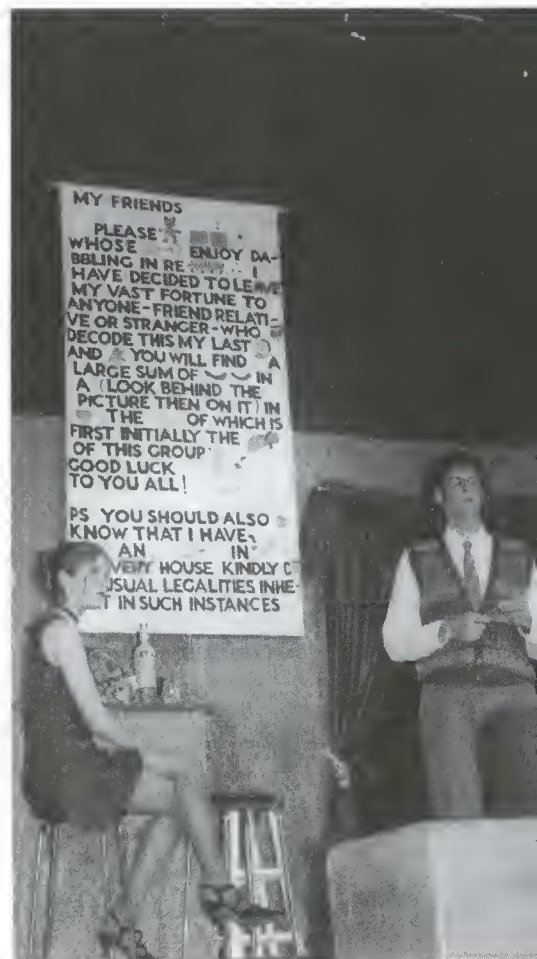 MY FRIENDS
PLEASE
WHOSE ENJOY DA-
BBLING IN RE I
HAVE DECIDED TO LEAVE
MY VAST FORTUNE TO
ANYONE-FRIEND RELATI-
VE OR STRANGER-WHO
DECODE THIS MY LAST
AND YOU WILL FIND A
LARGE SUM OF IN
A (LOOK BEHIND THE
PICTURE THEN ON IT) IN
THE OF WHICH IS
FIRST INITIALLY THE
OF THIS GROUP
GOOD LUCK
TO YOU ALL!
PS YOU SHOULD ALSO
KNOW THAT I HAVE
AN IN
HOUSE KINDLY
USUAL LEGALITIES INHE-
T IN SUCH INSTANCES